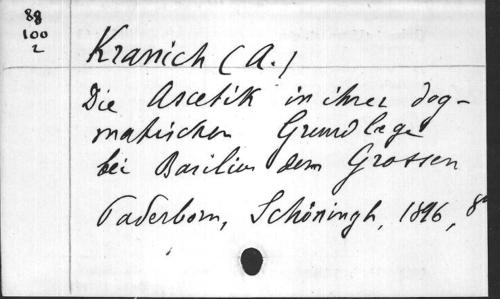 88
100
2
Kranich (A.)
Die Ascetik in ihrer dog-
matischen Grundlage
bei Basilius dem Grossen
Paderborn, Schöningh, 1896, 8°